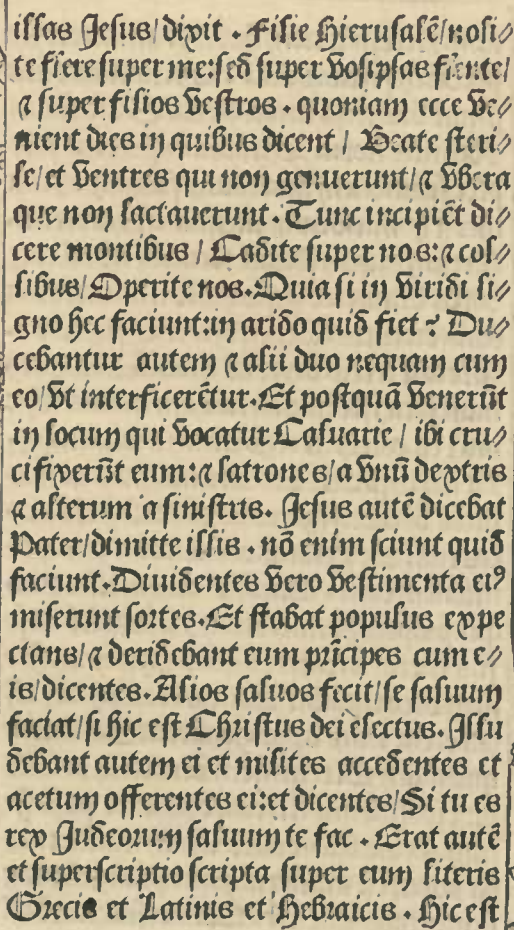 illas Jesus/dixit . Filie Hierusalē/noli⸗
te flere super me:sed super vosipsas flente/
⁊ super filios vestros . quoniam ecce ve⸗
nient dies in quibus dicent / Beate steri⸗
le/et ventres qui non genuerunt/⁊ vbera
que non lactauerunt. Tunc incipiēt di⸗
cere montibus / Cadite super nos:⁊ col⸗
libus/Operite nos. Quia si in viridi li⸗
gno hec faciunt:in arido quid fiet ? Du⸗
cebantur autem ⁊ alii duo nequam cum
eo/vt interficerētur. Et postquā venerūt
in locum qui vocatur Caluarie / ibi cru⸗
cifixerūt eum:⁊ latrones/a vnū dextris
⁊ alterum a sinistris. Jesus autē dicebat
Pater/dimitte illis . nō enim sciunt quid
faciunt. Diuidentes vero vestimenta eiꝰ
miserunt sortes. Et stabat populus expe
ctans/⁊ deridebant eum prīcipes cum e⸗
is/dicentes. Alios saluos fecit/se saluum
faciat/si hic est Christus dei electus. Illu
debant autem ei et milites accedentes et
acetum offerentes ei:et dicentes/Si tu es
rex Judeorum saluum te fac . Erat autē
et superscriptio scripta super eum literis
Grecis et Latinis et Hebraicis . Hic est